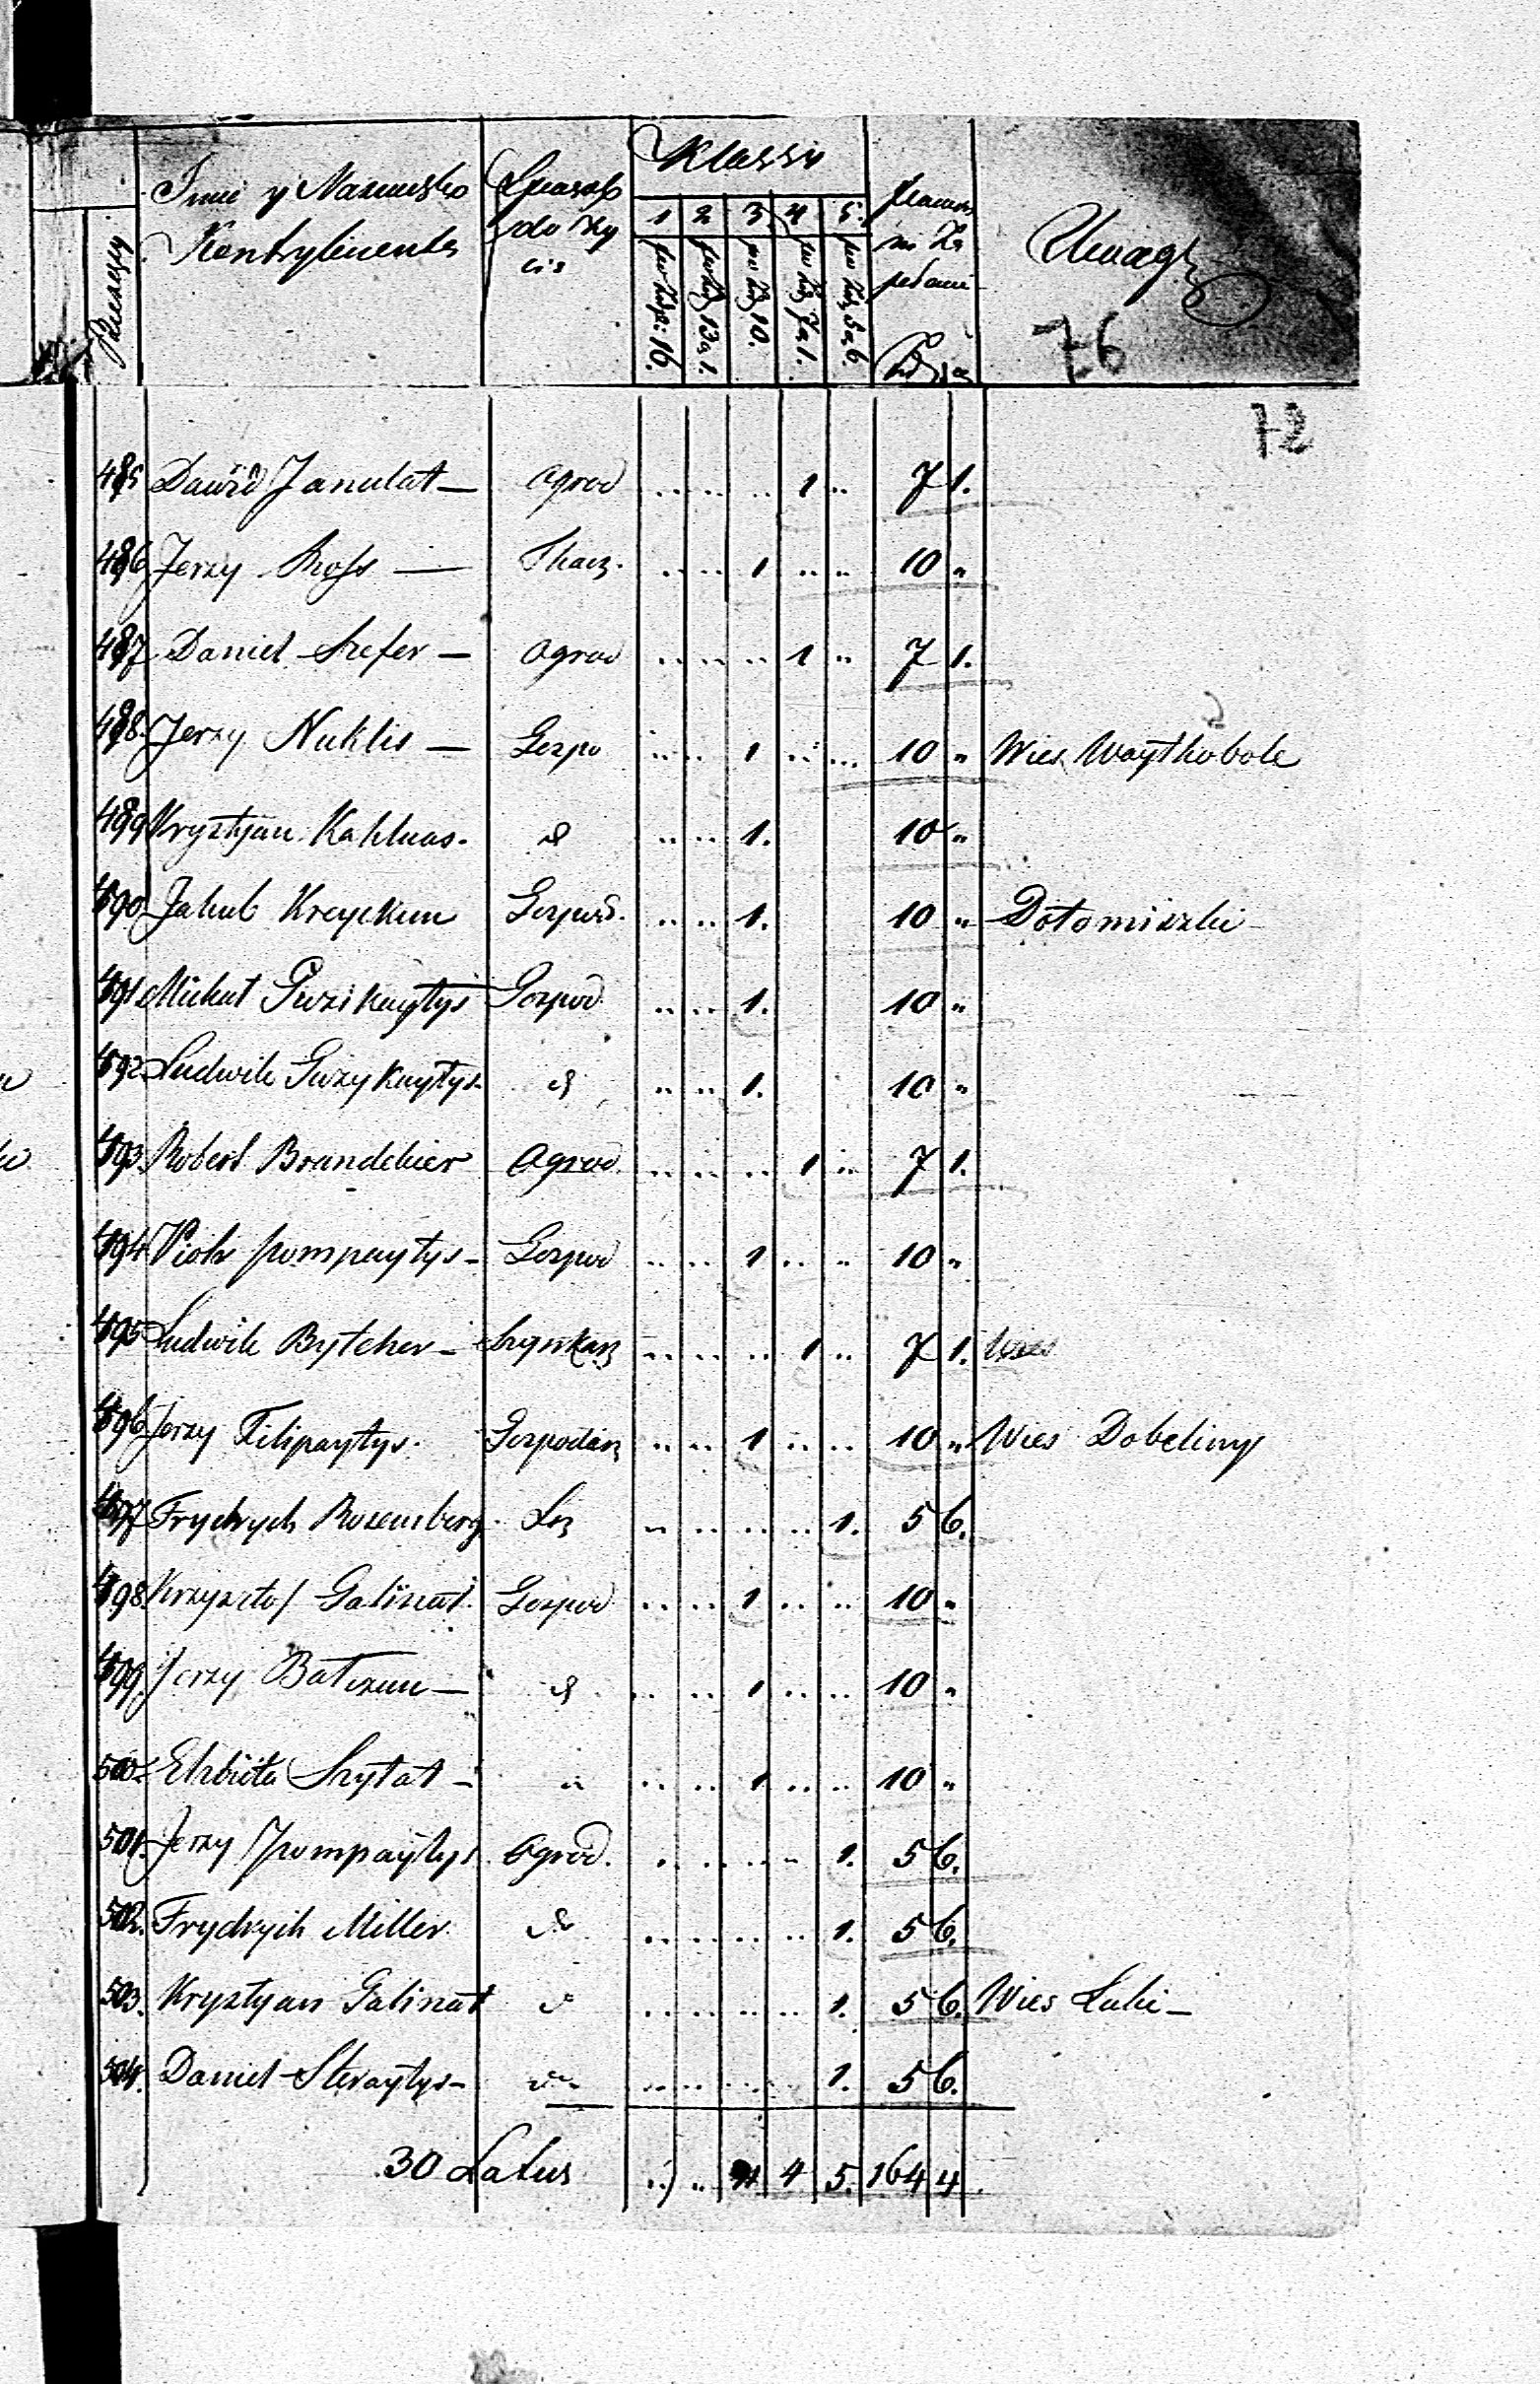 Imie y Nazwisko
Kontrybuenta
Sposob
do Zy
cia
Klassy
1 2 3 4 5.
per tal: 16.
13 g 1.
10.
7 g 1.
5 g 6.
Uwagi
76
72
485 Dawid Janulat — Ogrod .. .. .. 1 .. 7 1.
486 Jerzy Ross — Tkacz. .. .. 1 .. .. 10 "
487 Daniel Szefer — Ogrod .. .. .. 1 .. 7 1.
488. Jerzy Nuklis — Gospo .. .. 1 .. .. 10 " Wies Waythobole
489 Krysztjan Kahlnas. d .. .. 1. 10 "
490 Jakub Kreyckun Gospod. .. .. 1. 10 " Dotomiszki
491 Michał Giczikaytys Gospod .. .. 1. 10 "
492 Ludwik Giczykaytys d .. .. 1. 10 "
493. Robert Brandebier Ogrod. .. .. .. 1 .. 7 1.
494 Piotr Pompaytys — Gospod .. .. 1 .. .. 10 "
495 Ludwik Bytcher — Szynkarz .. .. .. 1 .. 7 1. Wies
496 Jerzy Filipaytys. Gospodarz .. .. 1 .. .. 10 " Wies Dobeliny
497 Frydrych Rozenberg. Loz .. .. .. .. 1. 5 6.
498. Krzysztof Galinat Gospod .. .. 1 .. .. 10 "
499. Jerzy Batszun — d .. .. 1 .. .. 10 "
500 Elzbieta Szytat — " .. .. 1 .. .. 10 "
501. Jerzy Pompaytys Ogrod. .. .. .. .. 1. 5 6.
502. Frydrych Miller d .. .. .. .. 1. 5 6.
503. Krysztyan Galinat d .. .. .. .. 1. 5 6. Wies Luki —
504. Daniel Steraytys — d .. .. .. .. 1. 5 6.
30 Latus .. .. 11 4 5. 164 4